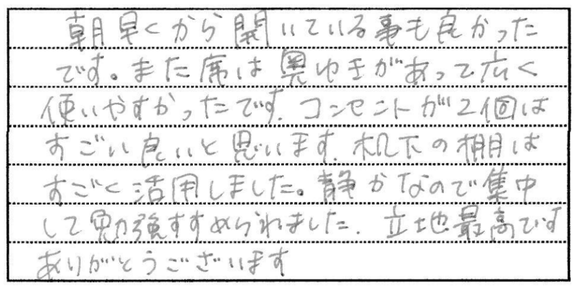 朝早くから開いている事も良かった
です。また席は奥ゆきがあって広く
使いやすかったです。コンセントが2個は
すごい良いと思います。机下の棚は
すごく活用しました。静かなので集中
して勉強すすめられました。立地最高です
ありがとうございます